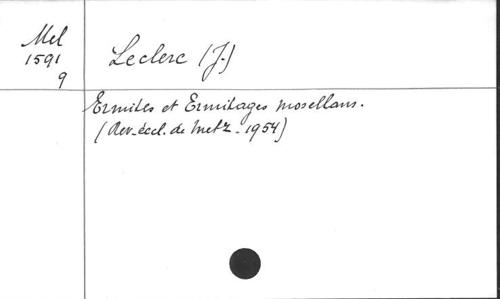 Mel
1591
9
Leclerc (J.)
Ermites et Ermitages mosellans.
(Rev. eccl. de Metz - 1954)